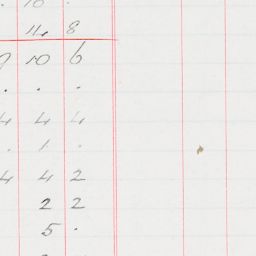 . 10 .
11 8
10 6
. . .
4 4 4
. 1 .
4 4 2
2 2
5 .